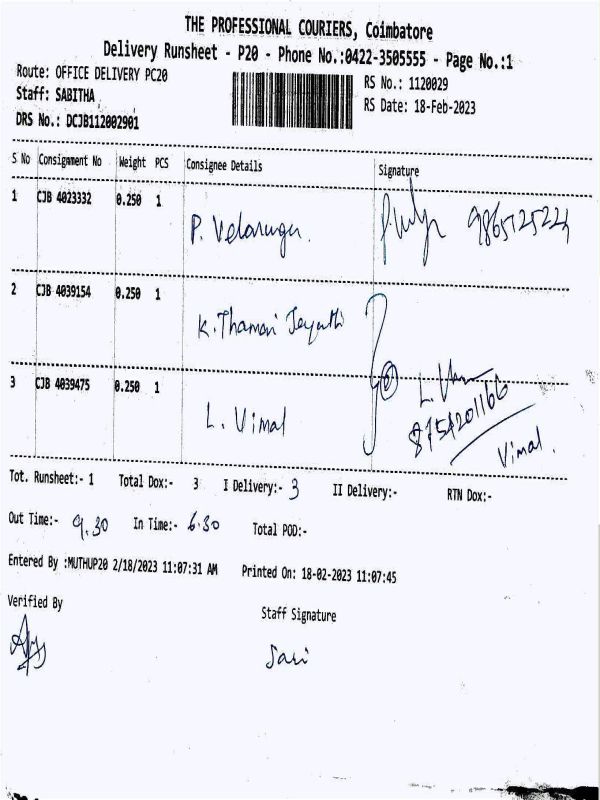 THE PROFESSIONAL COURIERS, Coimbatore
Delivery Runsheet - P20 - Phone No.:0422-3505555 - Page No.:1
Route: OFFICE DELIVERY PC20
RS No.: 1120029
Staff: SABITHA
RS Date: 18-Feb-2023
DRS No.: DCJB112002901
S No Consignment No Weight PCS Consignee Details Signature
1 CJB 4023332 0.250 1
P. Velarugu.
2 CJB 4039154 0.250 1
K. Thamari Jeyathi
3 CJB 4039475 0.250 1
L. Vimal
8754201166
Vimal.
Tot. Runsheet:- 1 Total Dox:- 3 I Delivery:- 3 II Delivery:- RTN Dox:-
Out Time:- 9.30 In Time:- 6.30 Total POD:-
Entered By :MUTHUP20 2/18/2023 11:07:31 AM Printed On: 18-02-2023 11:07:45
Verified By
Staff Signature
Sari